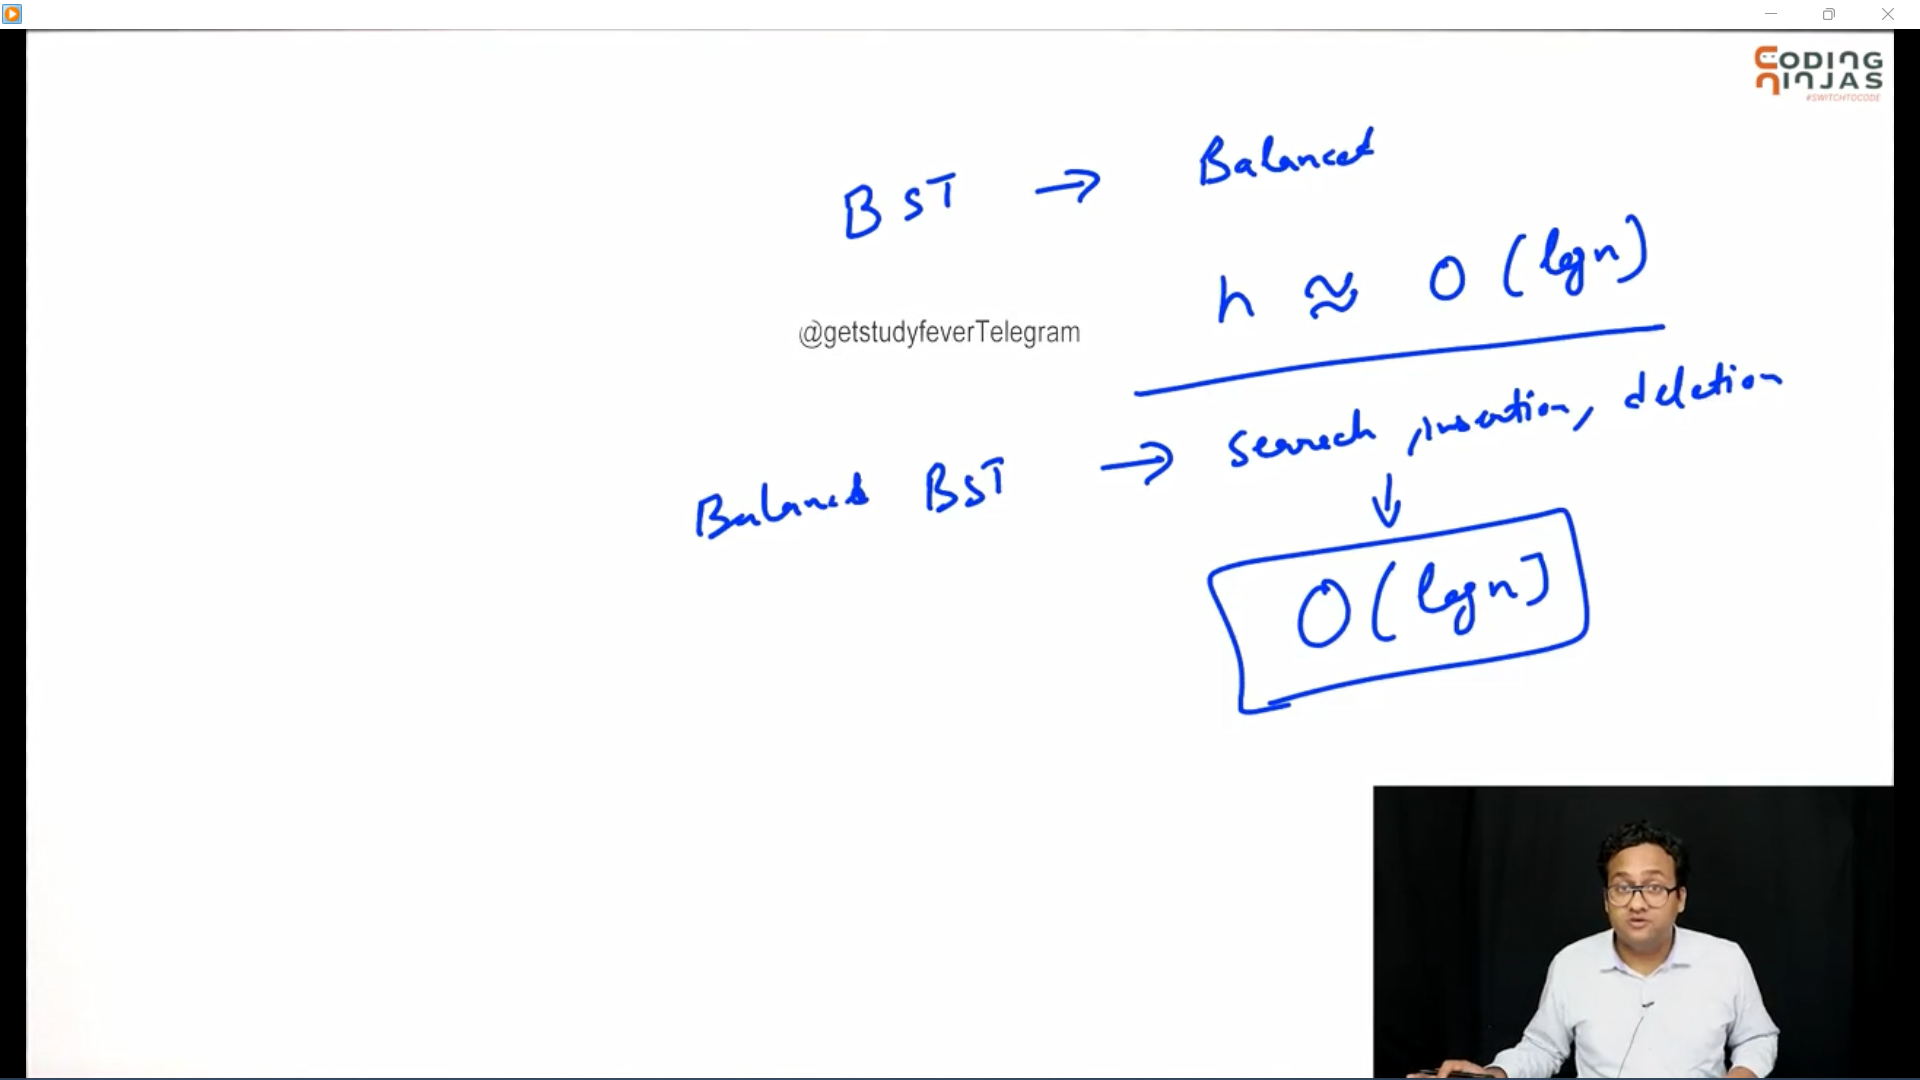 CODING
NINJAS
#SWITCHTOCODE
BST → Balanced
h ≈ O(logn)
@getstudyfeverTelegram
Balanced BST → Search, insertion, deletion
↓
O(logn)